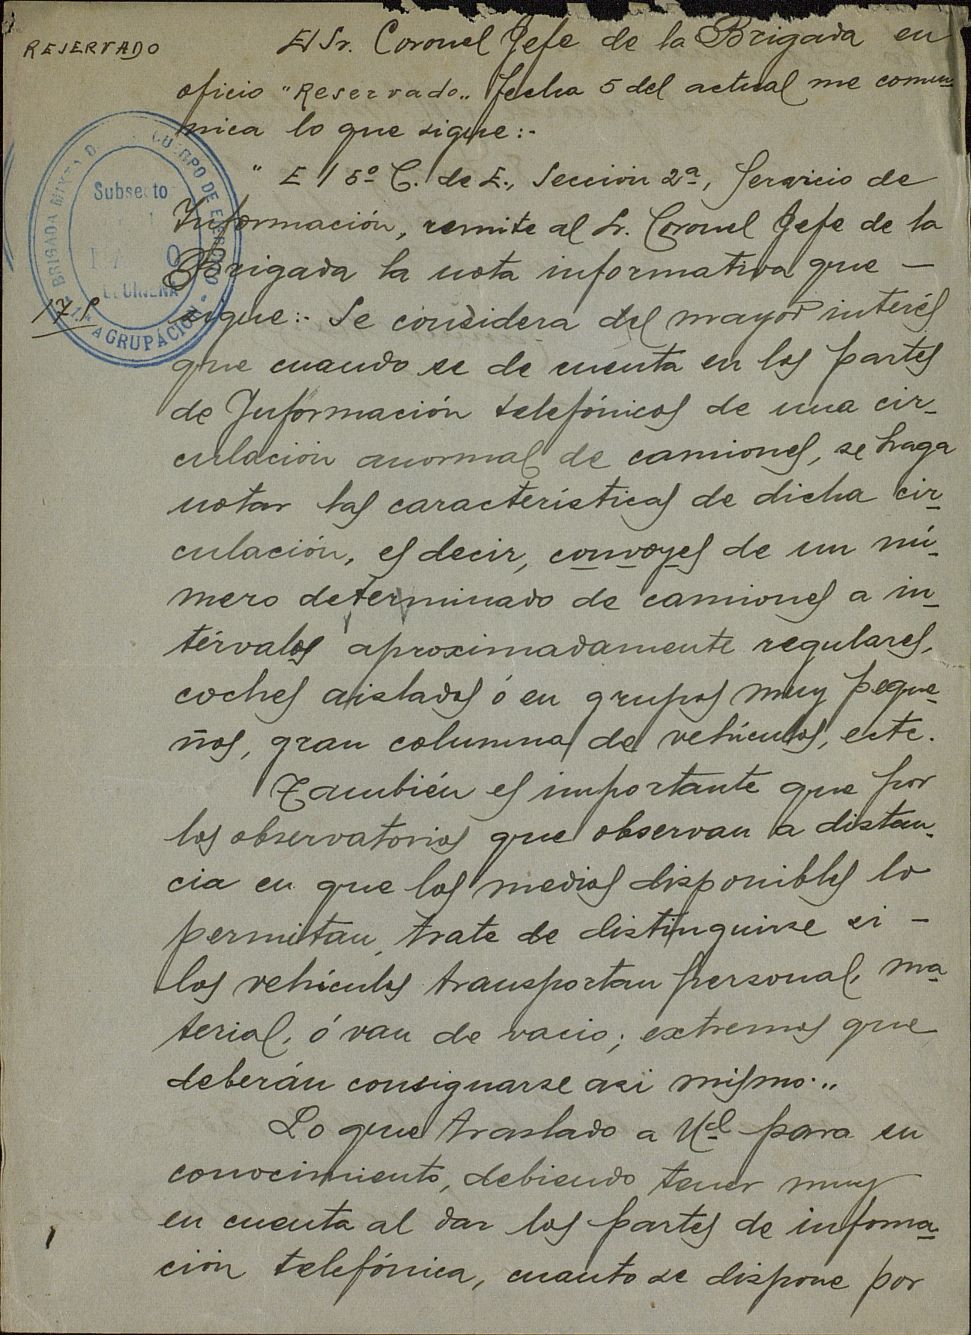 RESERVADO
El Sr. Coronel Jefe de la Brigada en
oficio "Reservado" fecha 5 del actual me comu-
nica lo que sigue:-
" E / 5º C. de E., Sección 2ª, Servicio de
Información, remite al Sr. Coronel Jefe de la
Brigada la nota informativa que —
sigue:- Se considera del mayor interés
que cuando se de cuenta en los partes
de Información telefónicos de una cir-
culación anormal de camiones, se haga
notar las características de dicha cir-
culación, es decir, convoyes de un nú-
mero determinado de camiones a in-
térvalos aproximadamente regulares,
coches aislados ó en grupos muy peque-
ños, gran columna de vehículos, ecte.
También es importante que por
los observatorios que observan a distan-
cia en que los medios disponibles lo
permitan, trate de distinguirse si —
los vehículos transportan personal, ma-
terial, ó van de vacio; extremos que
deberán consignarse asi mismo..,
Lo que traslado a Ud para su
conocimiento, debiendo tener muy
en cuenta al dar los partes de infoma-
ción telefónica, cuanto se dispone por
BRIGADA MIXTA D CUERPO DE
Subsecto
AGRUPACIÓN